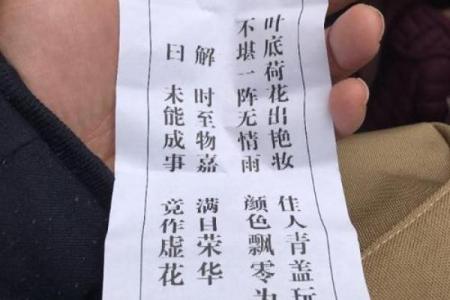 叶底荷花出艳妆 佳人青盖玩
不堪一阵无情雨 颜色飘零为
解 时至物嘉 满目荣华
曰 未能成事 竞作虚花